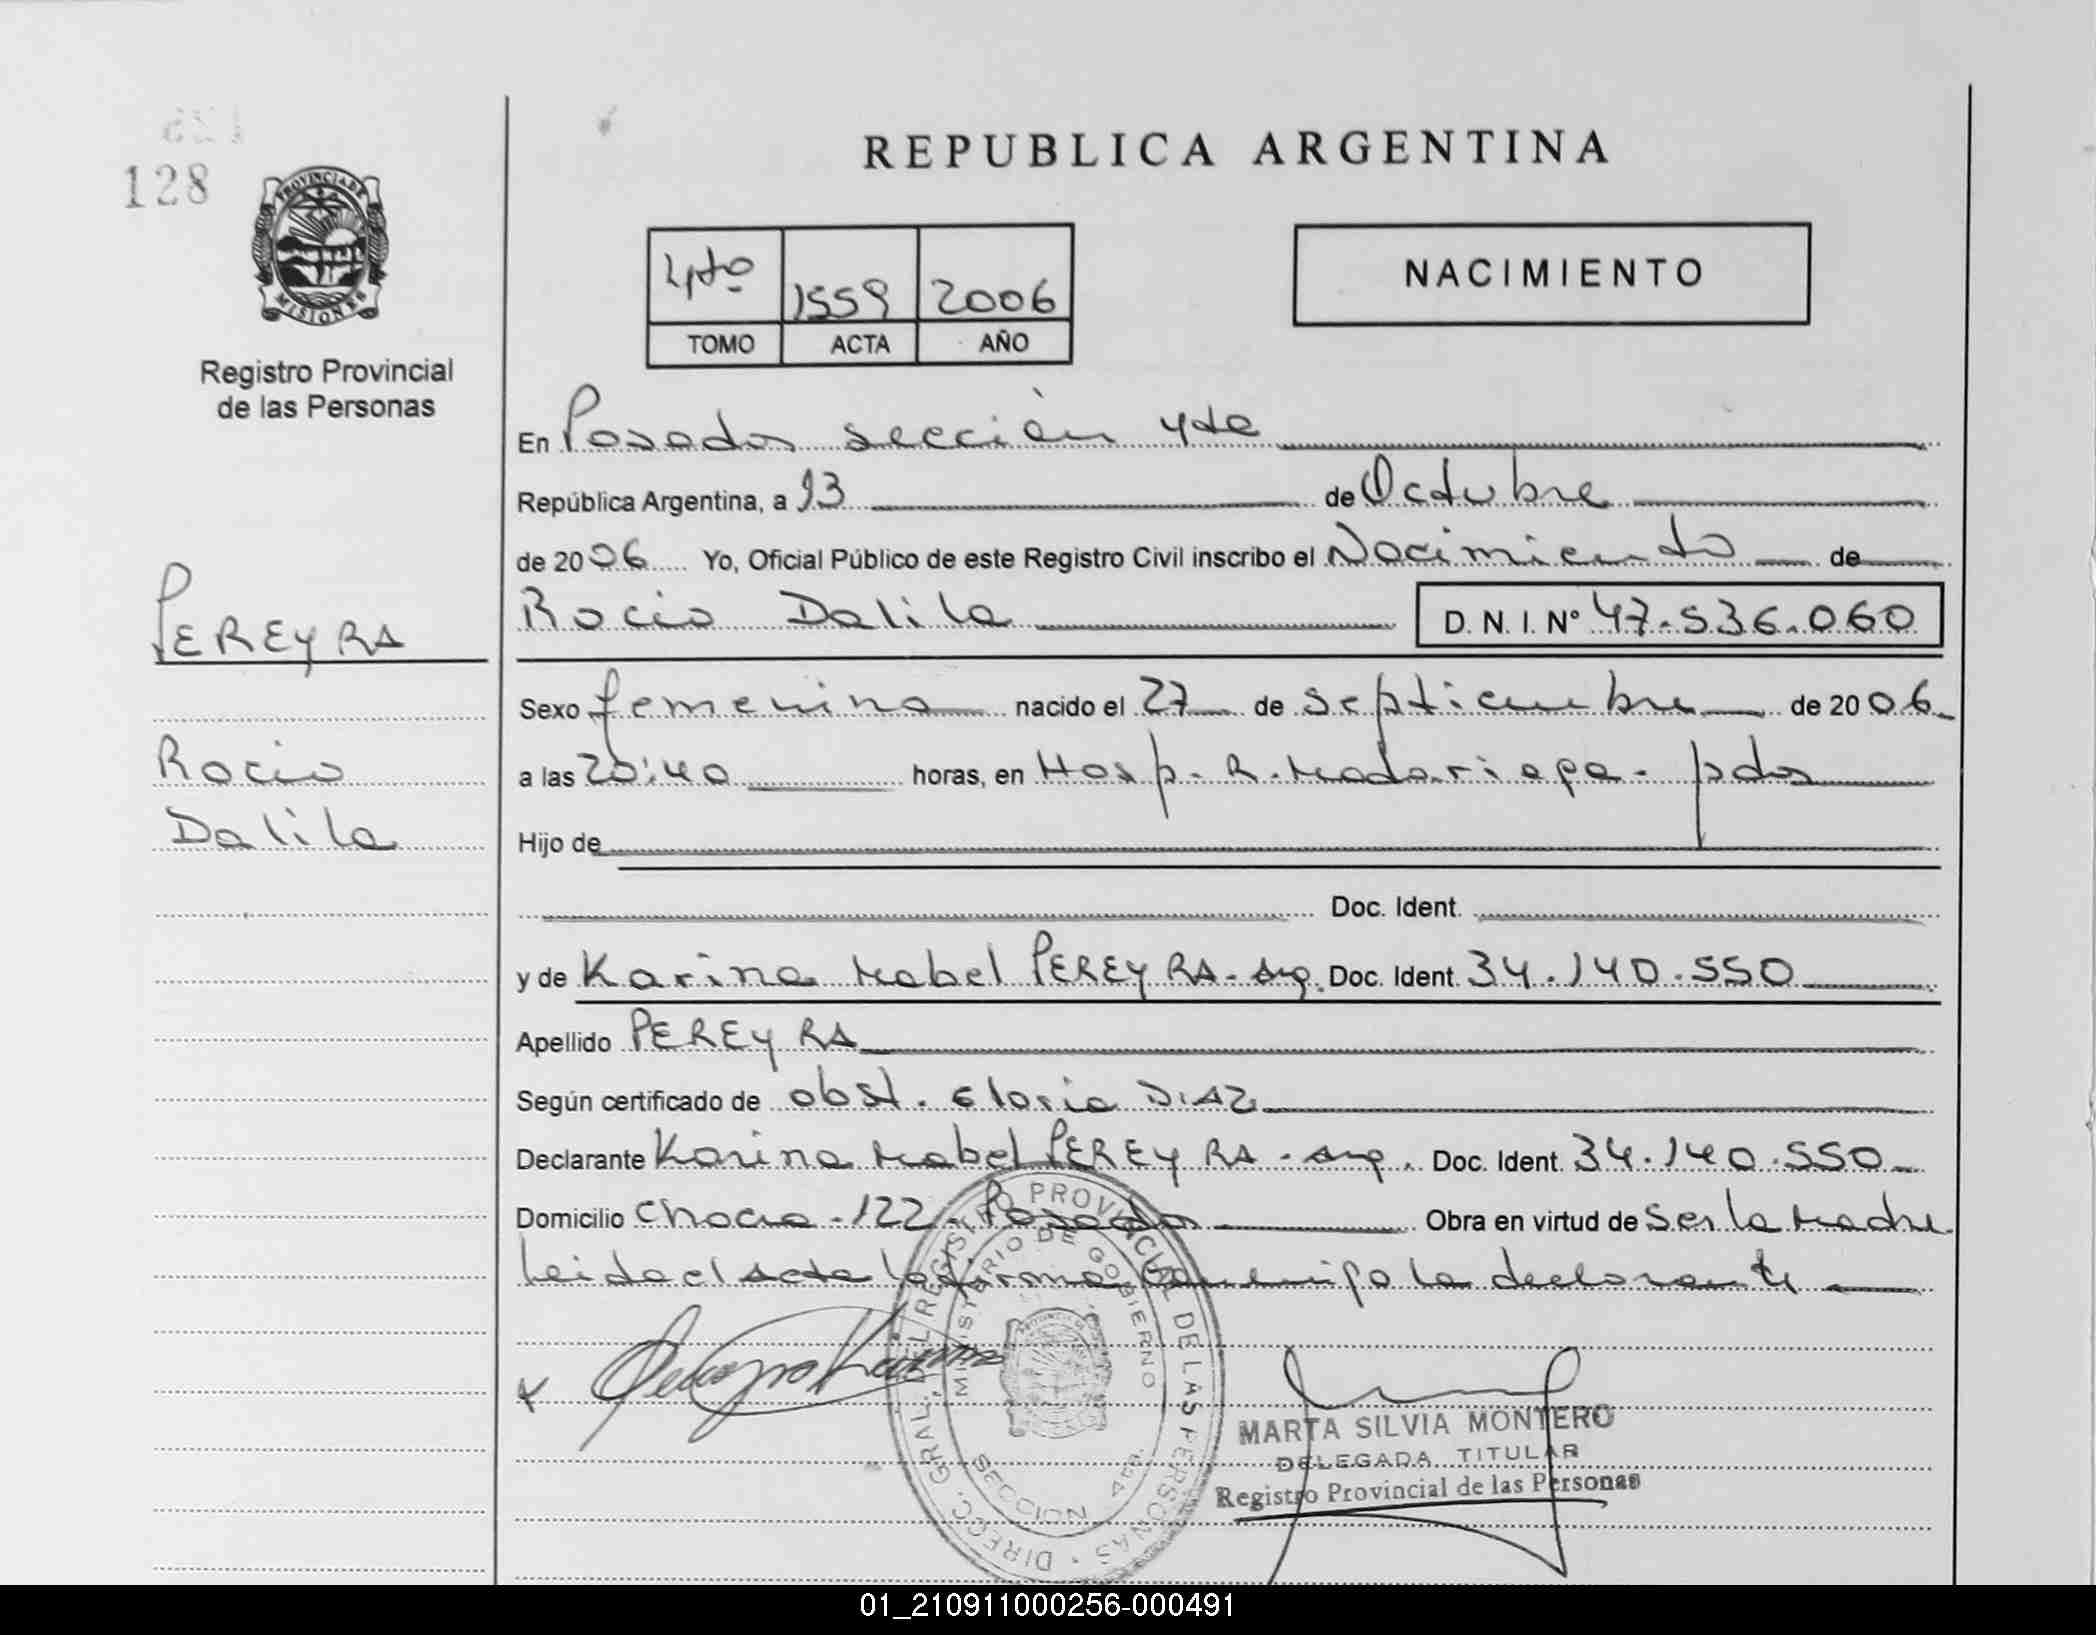 128
PROVINCIA DE
MISIONES
Registro Provincial
de las Personas
REPUBLICA ARGENTINA
4to 1559 2006
TOMO ACTA AÑO
NACIMIENTO
En Posadas sección 4ta
República Argentina, a 13 de Octubre
de 2006 Yo, Oficial Público de este Registro Civil inscribo el Nacimiento de
Rocio Dalila D. N. I. Nº 47.536.060
PEREYRA
Rocio
Dalila
Sexo femenino nacido el 27 de septiembre de 2006
a las 20:40 horas, en Hosp. R. Madariaga - pdas
Hijo de
Doc. Ident.
y de Karina Mabel PEREYRA - Arg. Doc. Ident. 34.140.550
Apellido PEREYRA
Según certificado de obst. Gloria DIAZ
Declarante Karina Mabel PEREYRA - Arg. Doc. Ident. 34.140.550
Domicilio Chaco - 122 - Posadas Obra en virtud de Ser la Madre
Leida el acta la firma conmigo la declarante
DIRECC. GRAL. DEL REGISTRO PROVINCIAL DE LAS PERSONAS
MINISTERIO DE GOBIERNO
SECCION 4ta.
MARTA SILVIA MONTERO
DELEGADA TITULAR
Registro Provincial de las Personas
01_210911000256-000491